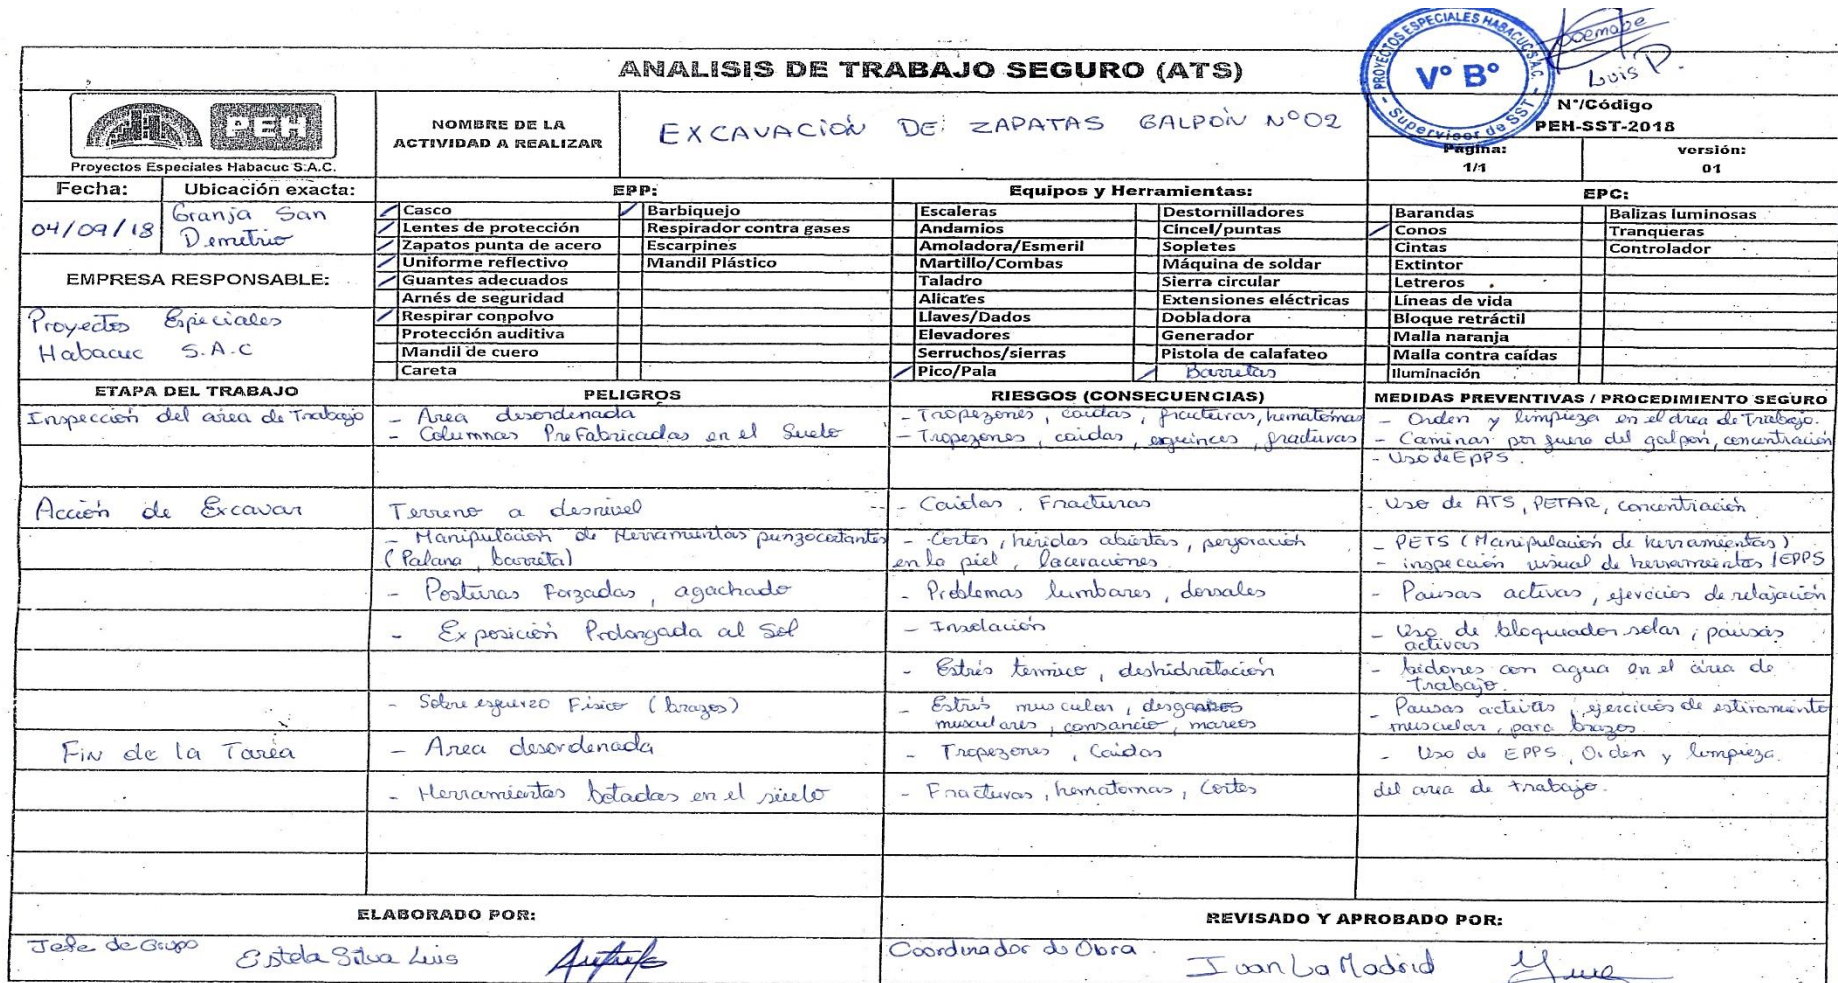 PROYECTOS ESPECIALES HABACUC S.A.C.
V° B°
Supervisor de SST
Luis P.
ANALISIS DE TRABAJO SEGURO (ATS)
PEH
Proyectos Especiales Habacuc S.A.C.
NOMBRE DE LA
ACTIVIDAD A REALIZAR
EXCAVACIÓN DE: ZAPATAS GALPÓN N°02
N°/Código
PEH-SST-2018
Pagina:
1/1
versión:
01
Fecha:
04/09/18
Ubicación exacta:
Granja San
Demetrio
EMPRESA RESPONSABLE:
Proyectos Especiales
Habacuc S.A.C
EPP:
Casco
Lentes de protección
Zapatos punta de acero
Uniforme reflectivo
Guantes adecuados
Arnés de seguridad
Respirar conpolvo
Protección auditiva
Mandil de cuero
Careta
Barbiquejo
Respirador contra gases
Escarpines
Mandil Plástico
Equipos y Herramientas:
Escaleras
Andamios
Amoladora/Esmeril
Martillo/Combas
Taladro
Alicates
Llaves/Dados
Elevadores
Serruchos/sierras
Pico/Pala
Destornilladores
Cincel/puntas
Sopletes
Máquina de soldar
Sierra circular
Extensiones eléctricas
Dobladora
Generador
Pistola de calafateo
Barretas
EPC:
Barandas
Conos
Cintas
Extintor
Letreros
Líneas de vida
Bloque retráctil
Malla naranja
Malla contra caídas
Iluminación
Balizas luminosas
Tranqueras
Controlador
ETAPA DEL TRABAJO
PELIGROS
RIESGOS (CONSECUENCIAS)
MEDIDAS PREVENTIVAS / PROCEDIMIENTO SEGURO
Inspección del area de Trabajo
- Area desordenada
- Columnas PreFabricadas en el Suelo
- Tropezones, caidas, fracturas, hematomas
- Tropezones, caidas, esguinces, fracturas
- Orden y limpieza en el area de Trabajo.
- Caminar por fuera del galpón, concentración
- Uso de EPPS.
Acción de Excavar
Terreno a desnivel
- Caidas, Fracturas
- Uso de ATS, PETAR, concentración
- Manipulación de Herramientas punzocortantes
(Palana, barreta)
- Cortes, heridas abiertas, perforación
en la piel, laceraciones
- PETS (Manipulación de herramientas)
- inspección visual de herramientas /EPPS
- Posturas Forzadas, agachado
- Problemas lumbares, dorsales
- Pausas activas, ejercicios de relajación
- Exposición Prolongada al Sol
- Insolación
- Uso de bloqueador solar, pausas
activas
- Estrés termico, deshidratación
- bidones con agua en el área de
Trabajo.
- Sobre esfuerzo Fisico (brazos)
- Estrés muscular, desgarros
musculares, cansancio, mareos
- Pausas activas, ejercicios de estiramiento
muscular, para brazos
Fin de la Tarea
- Area desordenada
- Tropezones, Caidas
- Uso de EPPS, Orden y limpieza.
- Herramientas botadas en el suelo
- Fracturas, hematomas, Cortes
del area de trabajo.
ELABORADO POR:
REVISADO Y APROBADO POR:
Jefe de Grupo
Estela Silva Luis
Coordinador de Obra
Ivan La Madrid